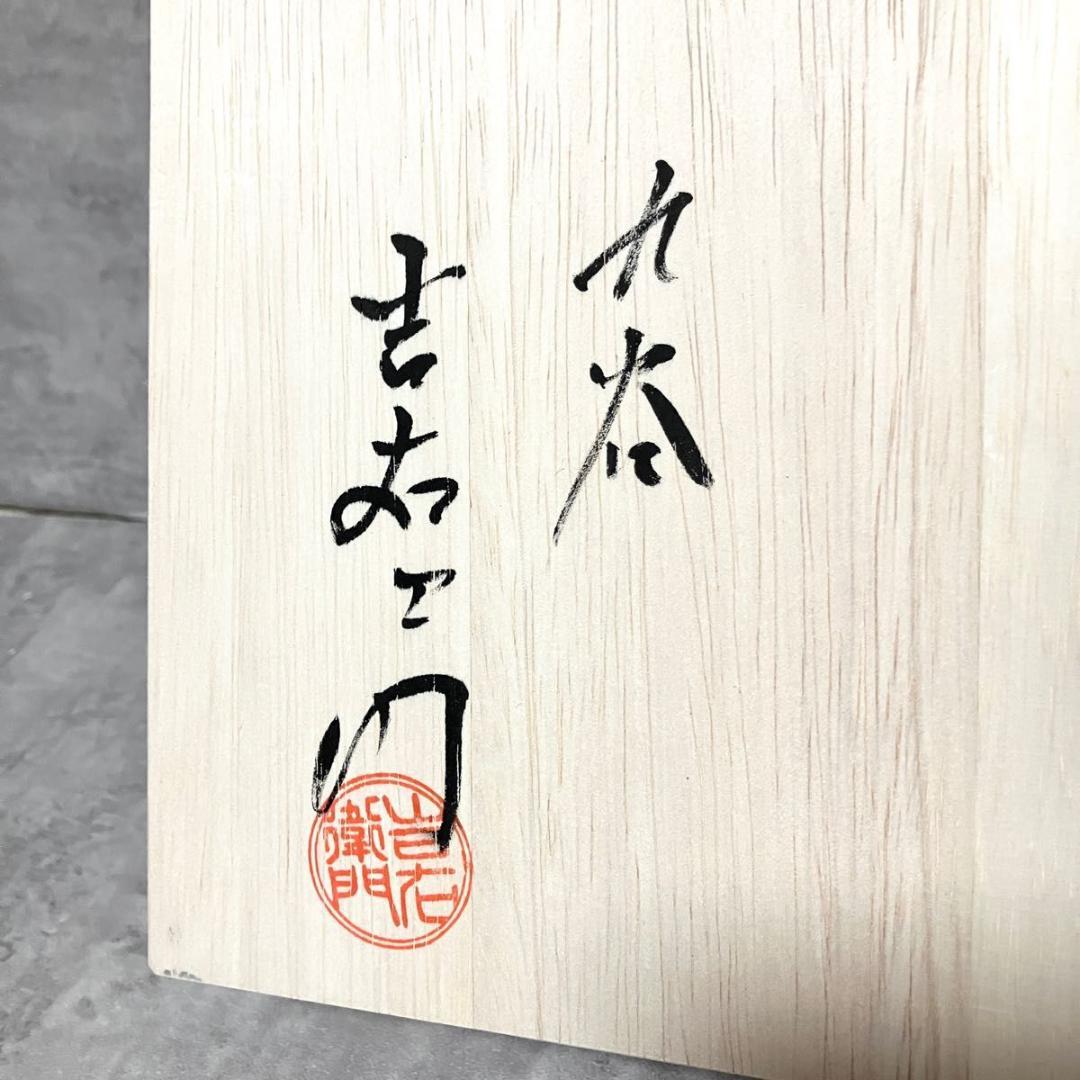 九谷
吉右エ門
吉右
衛門